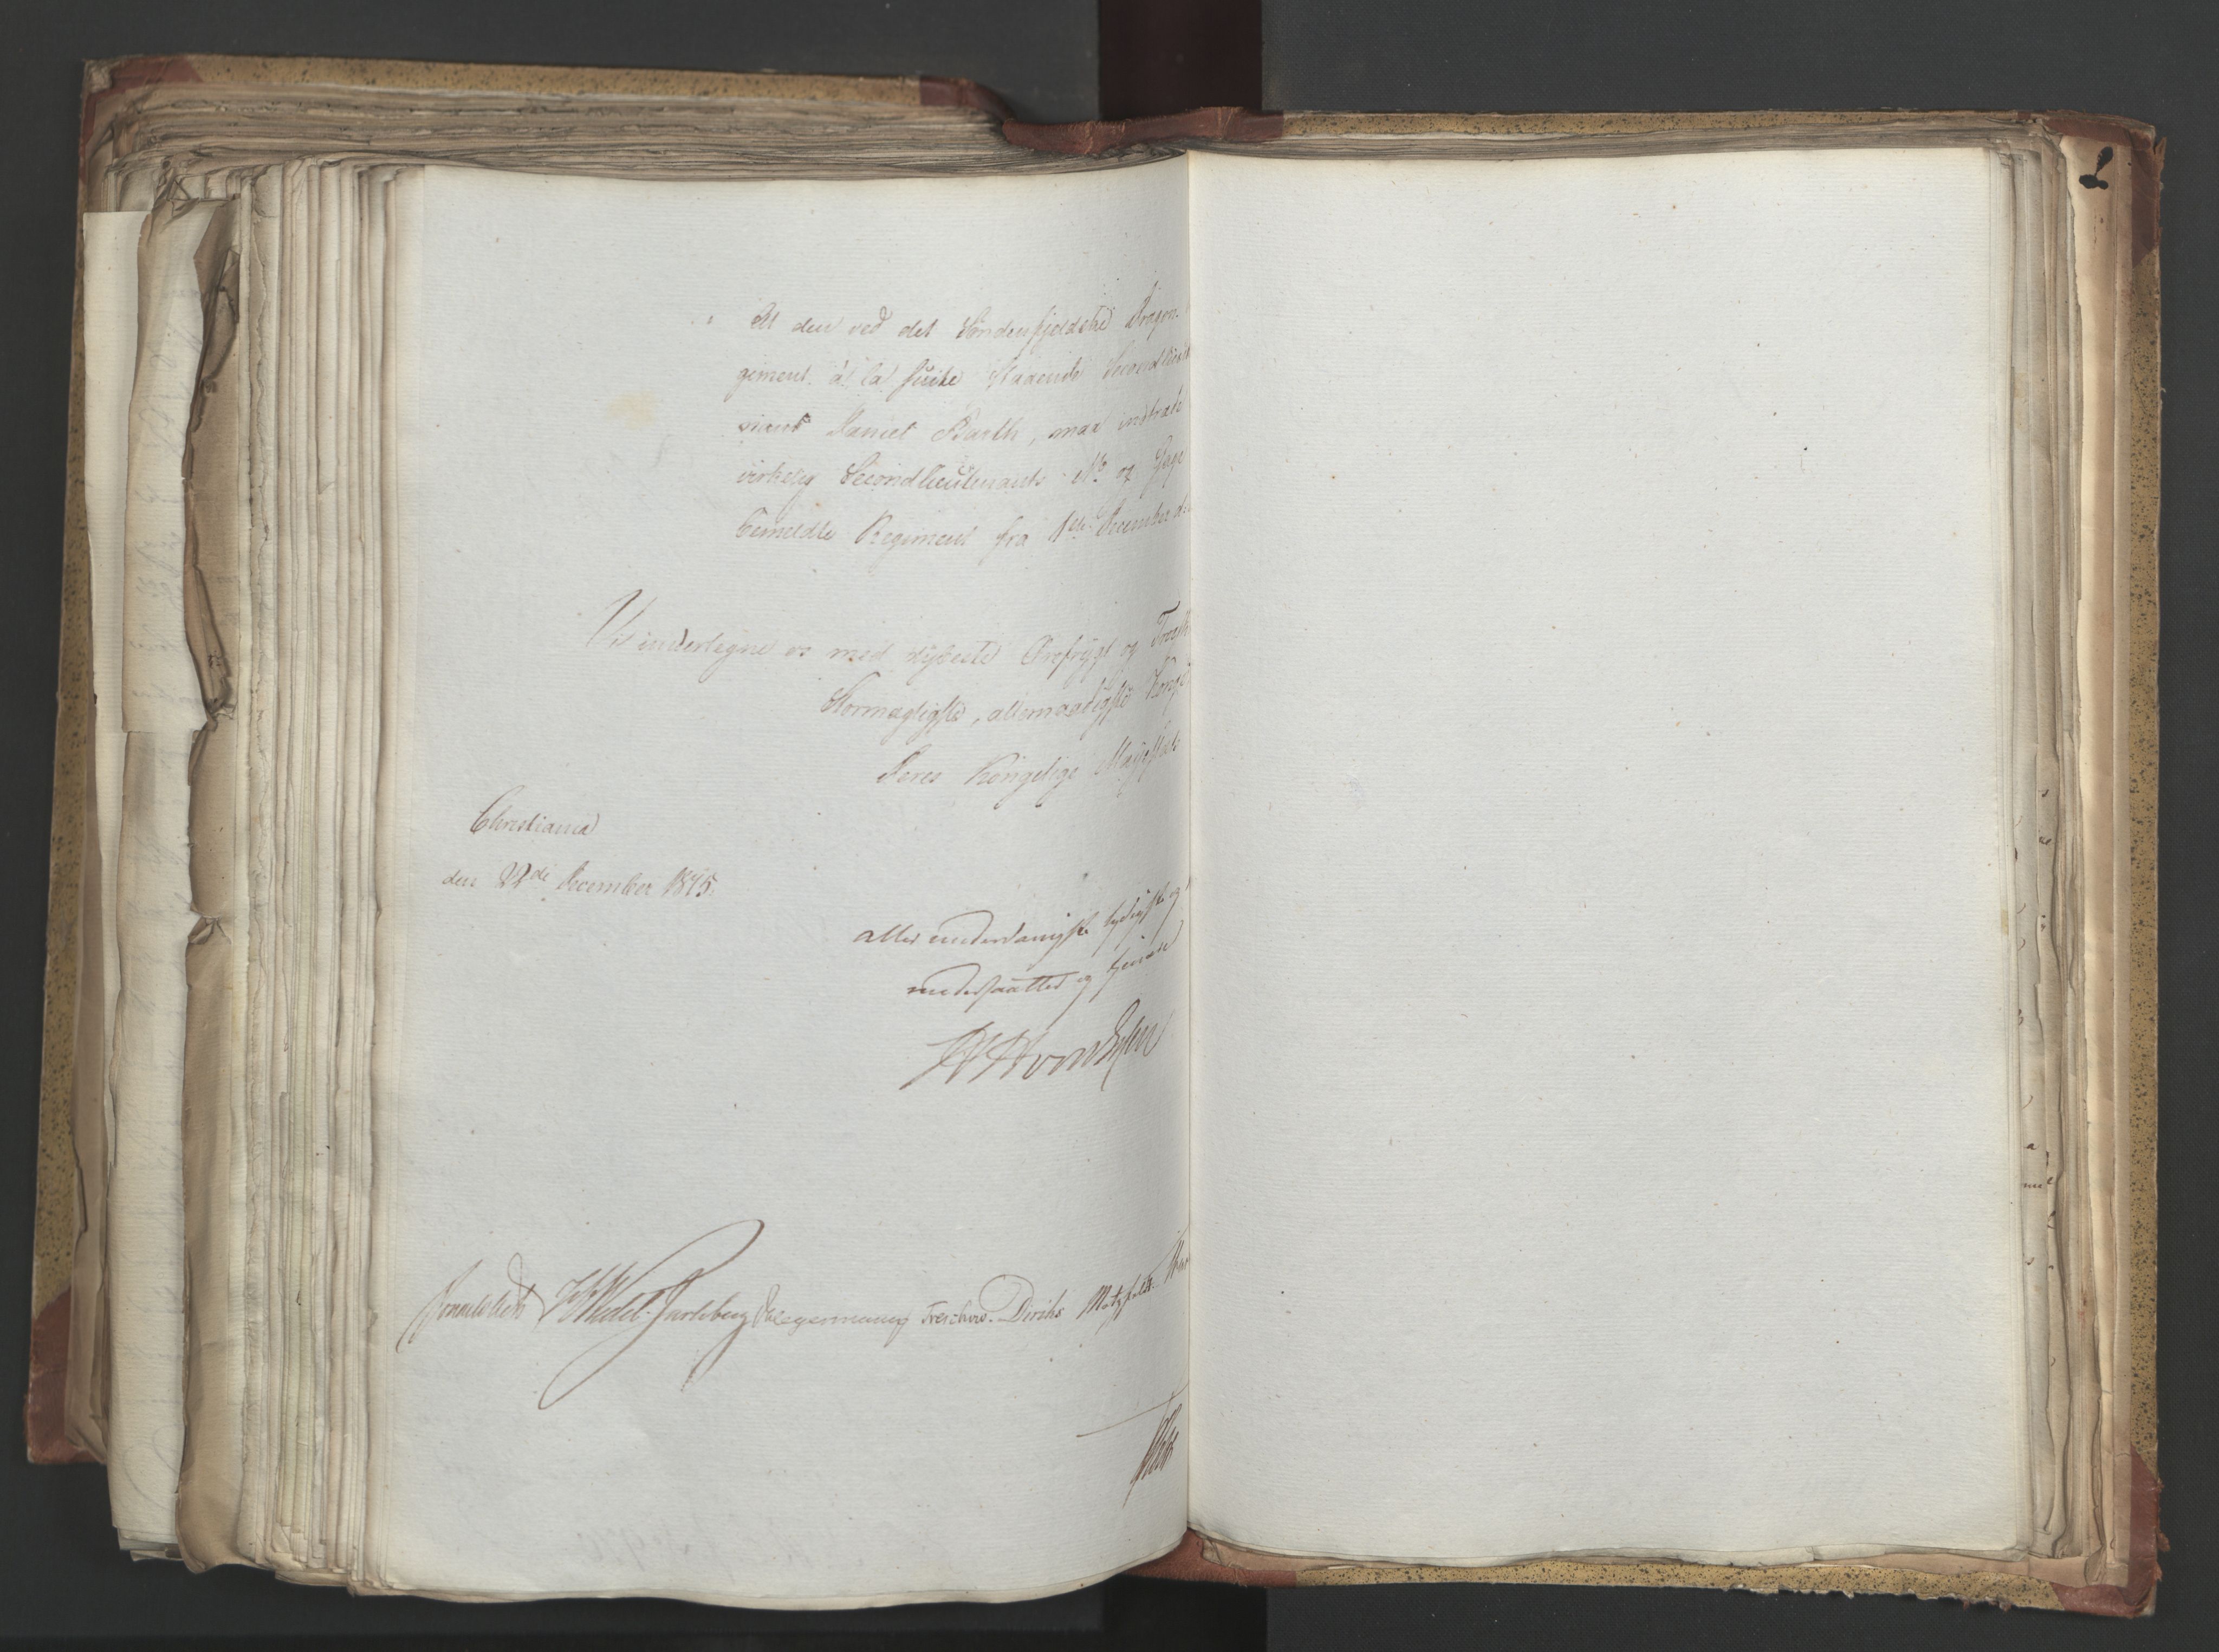 At den ved det Søndenfjeldske Dragon-
giment à la suite staaende Secondlieut
Daniel Barth, maa indtræde
virkelig Secondlieutenants No og Gage
bemeldte Regiment fra 1ste December d.
Vi undertegne os med dybeste Ærefrygt og Troesk
Stormægtigste, allernaadigste Konge
Deres Kongelige Majestæts
Christiania
den 22de December 1815.
allerunderdanigste lydigste og
undersaatter og tjenere
Sommerhielm HWedel-Jarlsberg Hegermann Treschow. Diriks Motzfeldt.